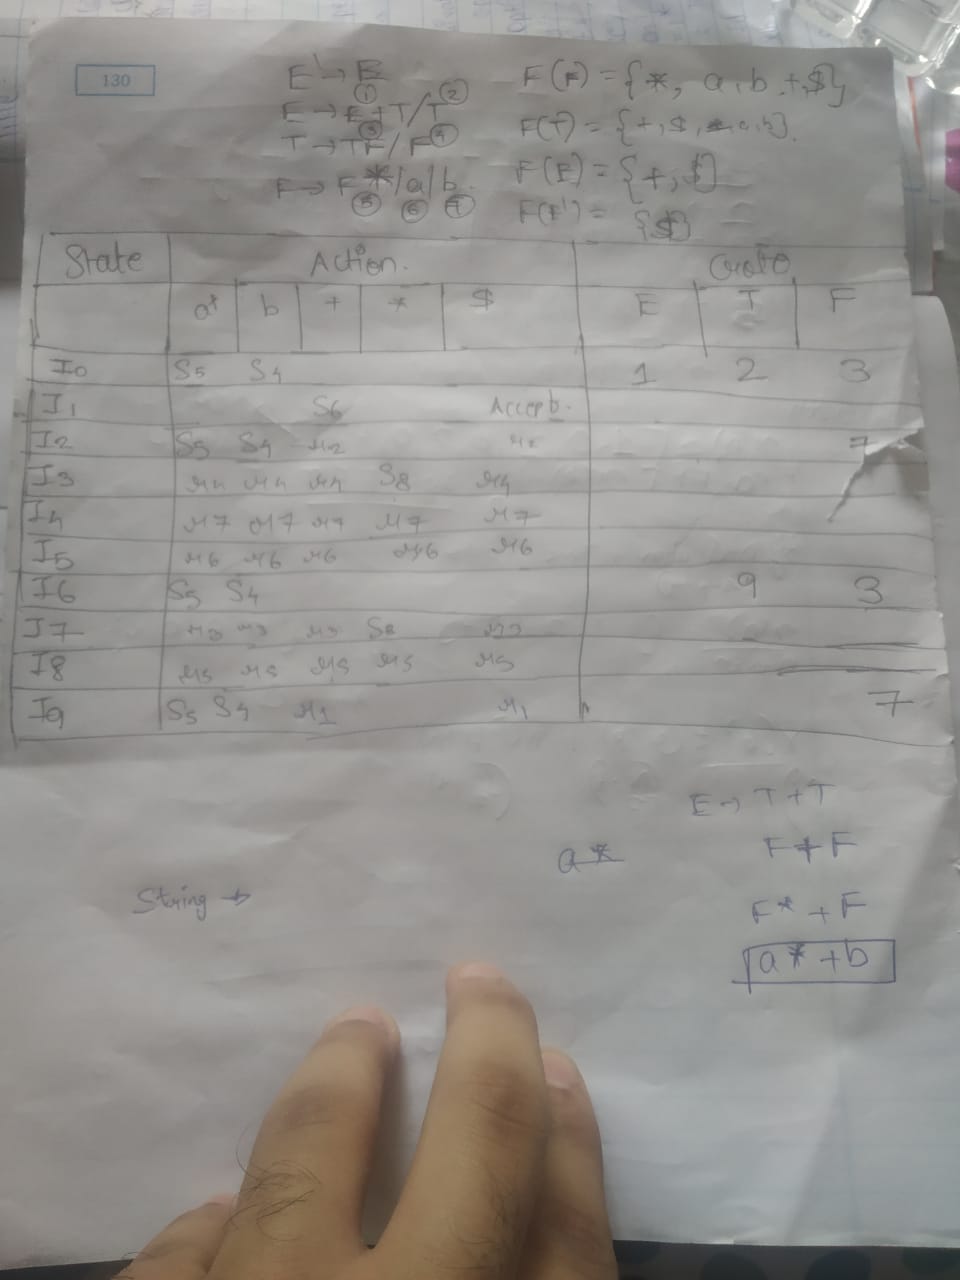 130
E' → E
E → E+T/T
① ②
T → TF/F
③ ④
F → F*/a/b
⑤ ⑥ ⑦
F(F) = {*, a, b, +, $}
F(T) = {+, $, a, b}.
F(E) = {+, $}
F(E') = {$}
State Action. Goto
a* b + * $ E T F
I0 S5 S4 1 2 3
I1 S6 Accept.
I2 S5 S4 r2 r2 7
I3 r4 r4 r4 S8 r4
I4 r7 r7 r7 r7 r7
I5 r6 r6 r6 r6 r6
I6 S5 S4 9 3
I7 r3 r3 r3 S8 r3
I8 r5 r5 r5 r5 r5
I9 S5 S4 r1 r1 7
E → T+T
a* F+F
String → F*+F
a*+b